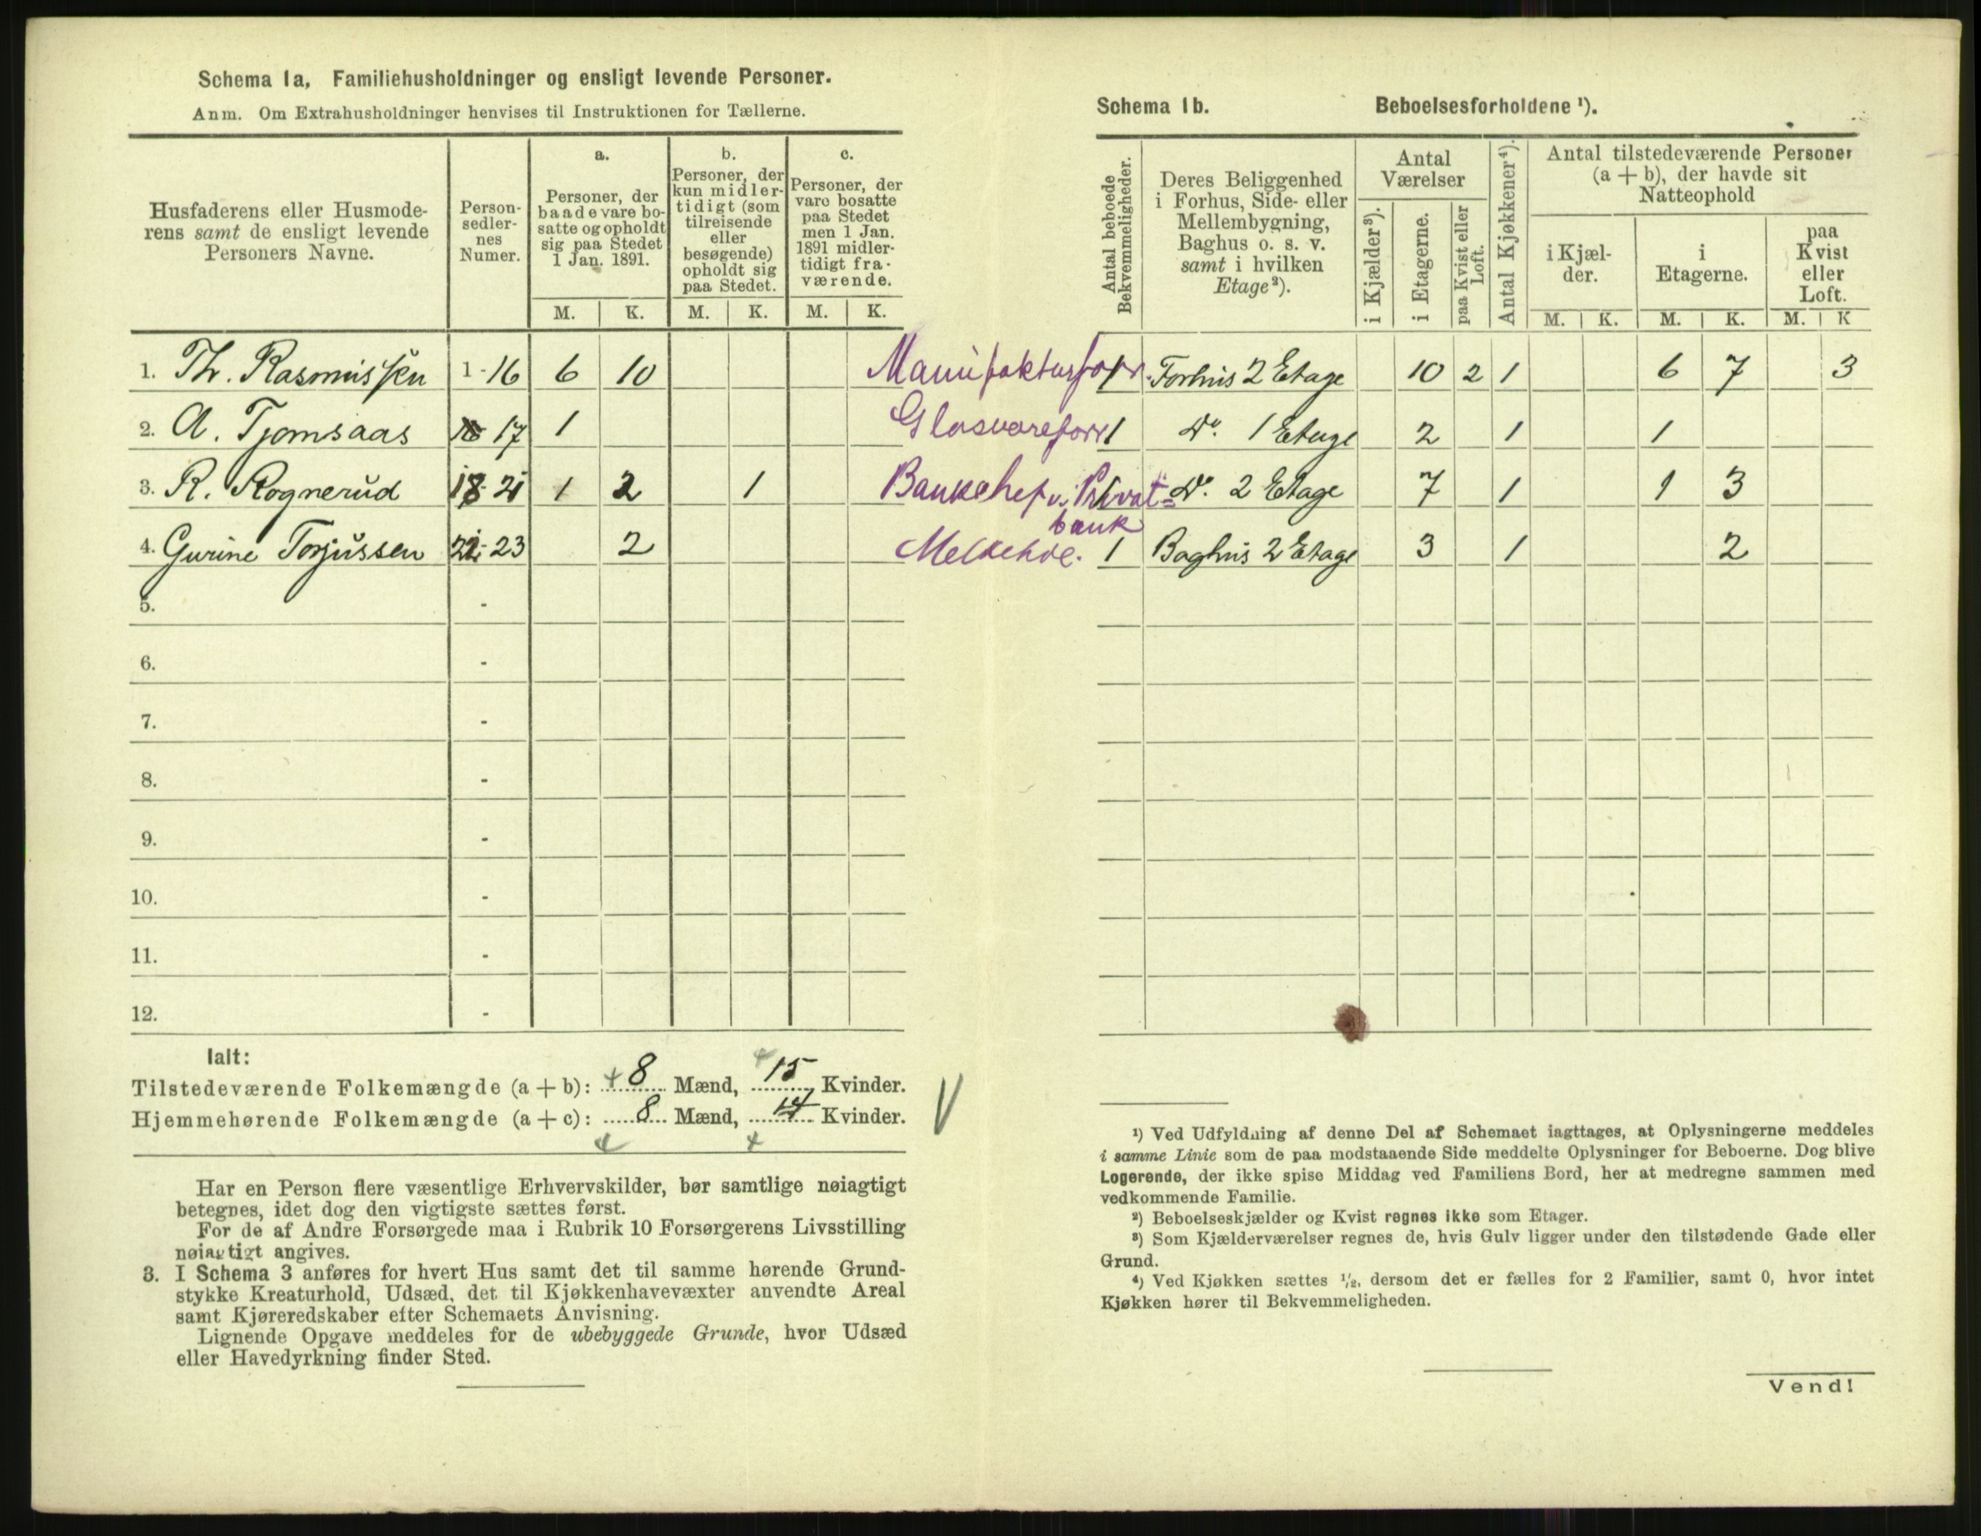 Schema 1a, Familiehusholdninger og ensligt levende Personer.
Anm. Om Extrahusholdninger henvises til Instruktionen for Tællerne.
Husfaderens eller Husmode-
rens samt de ensligt levende
Personers Navne.
Person-
sedler-
nes
Numer.
a.
Personer, der
baade vare bo-
satte og opholdt
sig paa Stedet
1 Jan. 1891.
b.
Personer, der
kun midler-
tidigt (som
tilreisende
eller
besøgende)
opholdt sig
paa Stedet.
c.
Personer, der
vare bosatte
paa Stedet
men 1 Jan.
1891 midler-
tidigt fra-
værende.
M. K. M. K. M. K.
1. Th. Rasmussen 1-16 6 10 Manufakturforr.
2. A. Tjomsaas 17 1 Glasvareforr
3. R. Rognerud 18-21 1 2 1 Bankchef v. Privat=
bank
4. Gurine Torjussen 22-23 2 Melkehdl.
5. -
6. -
7. -
8. -
9. -
10. -
11. -
12. -
Ialt:
Tilstedeværende Folkemængde (a + b): 8 Mænd, 15 Kvinder.
Hjemmehørende Folkemængde (a + c): 8 Mænd, 14 Kvinder.
Har en Person flere væsentlige Erhvervskilder, bør samtlige nøiagtigt
betegnes, idet dog den vigtigste sættes først.
For de af Andre Forsørgede maa i Rubrik 10 Forsørgerens Livsstilling
nøiagtigt angives.
3. I Schema 3 anføres for hvert Hus samt det til samme hørende Grund-
stykke Kreaturhold, Udsæd, det til Kjøkkenhavevæxter anvendte Areal
samt Kjøreredskaber efter Schemaets Anvisning.
Lignende Opgave meddeles for de ubebyggede Grunde, hvor Udsæd
eller Havedyrkning finder Sted.
Schema 1b. Beboelsesforholdene ¹).
Antal beboede
Bekvemmeligheder.
Deres Beliggenhed
i Forhus, Side- eller
Mellembygning,
Baghus o. s. v.
samt i hvilken
Etage²).
Antal
Værelser
i Kjælder³).
i Etagerne.
paa Kvist eller
Loft.
Antal Kjøkkener⁴).
Antal tilstedeværende Personer
(a + b), der havde sit
Natteophold
i Kjæl-
der.
i
Etagerne.
paa
Kvist
eller
Loft.
M. K. M. K. M. K
1 Forhus 2 Etage 10 2 1 6 7 3
1 Do. 1 Etage 2 1 1
1 Do. 2 Etage 7 1 1 3
1 Baghus 2 Etage 3 1 2
¹) Ved Udfyldning af denne Del af Schemaet iagttages, at Oplysningerne meddeles
i samme Linie som de paa modstaaende Side meddelte Oplysninger for Beboerne. Dog blive
Logerende, der ikke spise Middag ved Familiens Bord, her at medregne sammen med
vedkommende Familie.
²) Beboelseskjælder og Kvist regnes ikke som Etager.
³) Som Kjælderværelser regnes de, hvis Gulv ligger under den tilstødende Gade eller
Grund.
⁴) Ved Kjøkken sættes ½, dersom det er fælles for 2 Familier, samt 0, hvor intet
Kjøkken hører til Bekvemmeligheden.
Vend!